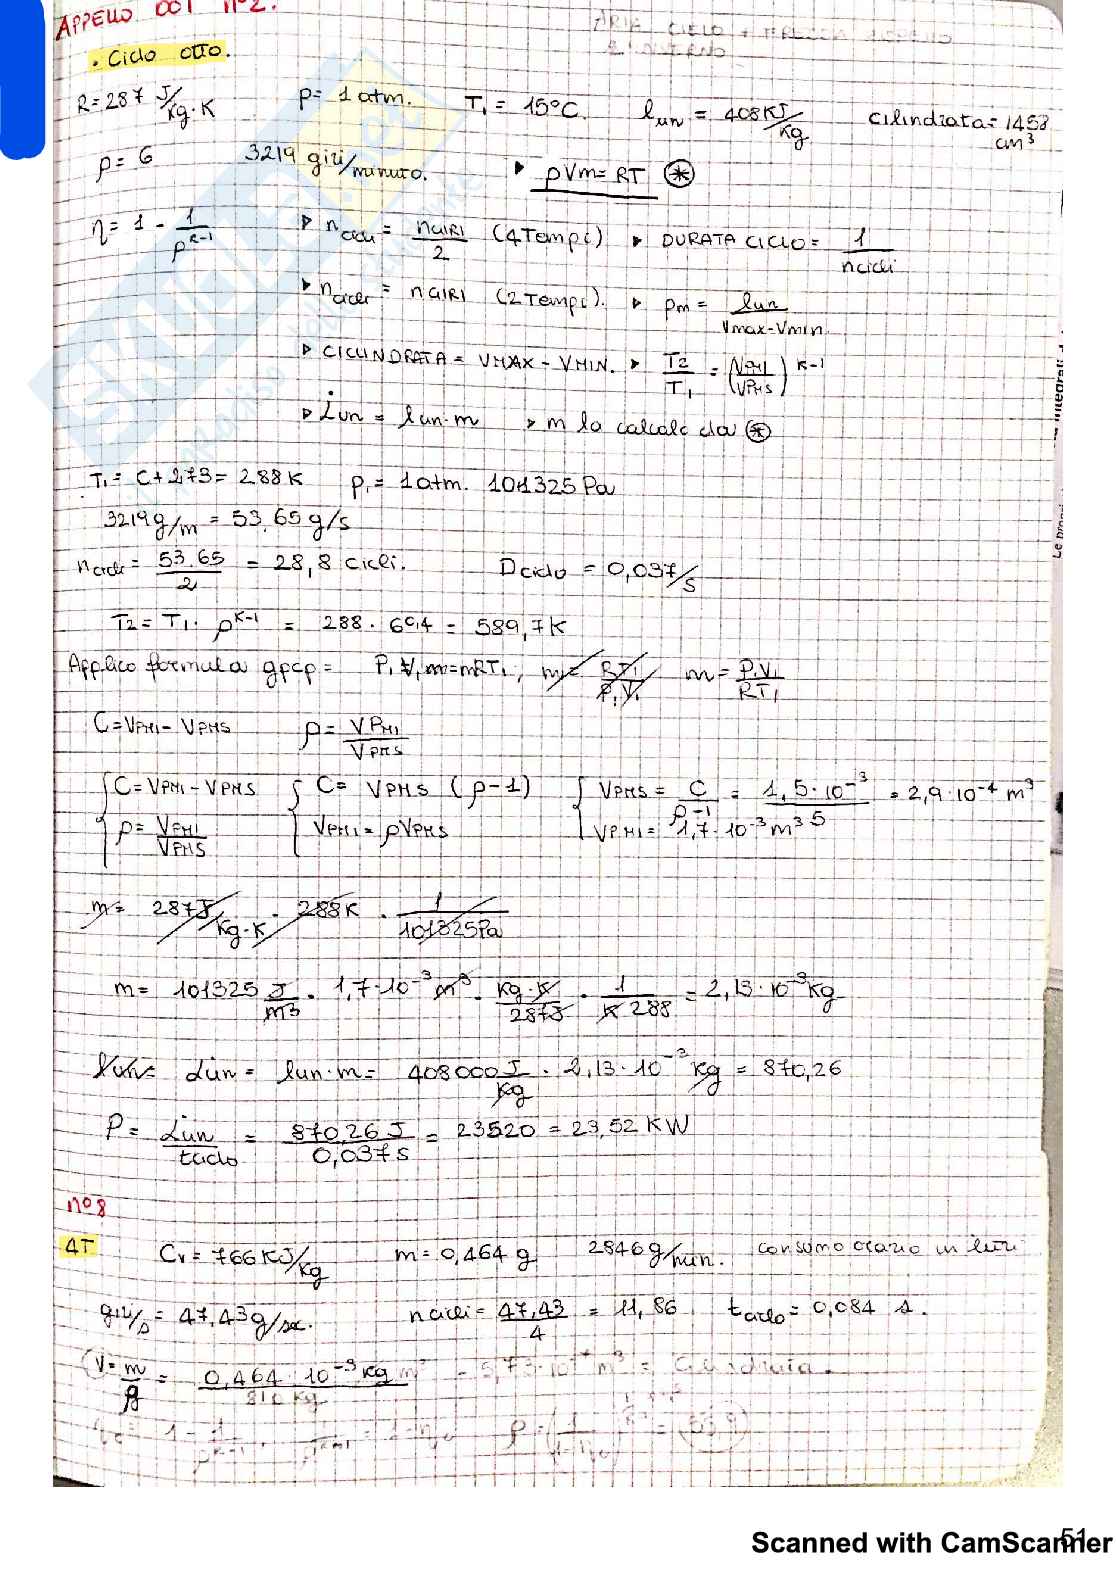 APPELLO 001 n°2.
ARIA CIELO
• Ciclo OTTO.
R=287 J/kg·K p= 1 atm. T₁ = 15°C. lun = 408KJ/kg cilindrata=1458 cm³
ρ= 6 3219 giri/minuto. ▸ pVm=RT ⊛
η= 1 - 1/ρ^(K-1) ▸ ncicli = nGIRI/2 (4Tempi) ▸ DURATA CICLO= 1/ncicli
▸ ncicli = nGIRI (2Tempi). ▸ pm= lun/Vmax-Vmin.
▸ CICLINDRATA= VMAX - VMIN. ▸ T2/T₁ = (VPMI/VPMS)^(K-1)
▸ L̇un = lun·m ▸ m la calcolo da ⊛
T₁= C+273= 288K p₁= 1atm. 101325 Pa
3219g/m = 53,65 g/s
ncicli= 53.65/2 = 28,8 cicli. Dciclo = 0,037/s
T2= T₁· ρ^(K-1) = 288 · 6^0,4 = 589,7K
Applico formula gpcp= P₁V₁m=mRT₁; m= RT₁/P₁V₁ m= P₁V₁/RT₁
C=VPMI- VPMS ρ= VPMI/VPMS
{C=VPMI-VPMS {C= VPMS (ρ-1) {VPMS = C/ρ-1 = 1,5·10⁻³/5 = 2,9·10⁻⁴ m³
ρ= VPMI/VPMS VPMI= ρVPMS VPMI= 1,7·10⁻³m³
m= 287J/kg·K · 288K · 1/101325Pa
m= 101325 J/m³ · 1,7·10⁻³m³ · kg·K/287J · 1/K 288 = 2,13·10⁻³kg
Lun = lun·m= 408000J/kg · 2,13·10⁻³ kg = 870,26
P= L̇un/tciclo = 870,26 J/0,037s = 23520 = 23,52 KW
n°8
4T Cv= 766KJ/kg m=0,464 g 2846g/min. consumo orario in litri
giri/s = 47,43g/sec. ncicli= 47,43/4 = 11,86 tciclo= 0,084 s.
V= m/ρ = 0,464·10⁻³kg m³/810 kg = 5,73·10⁻⁷ m³ = Cilindrata.
Scanned with CamScanner
51